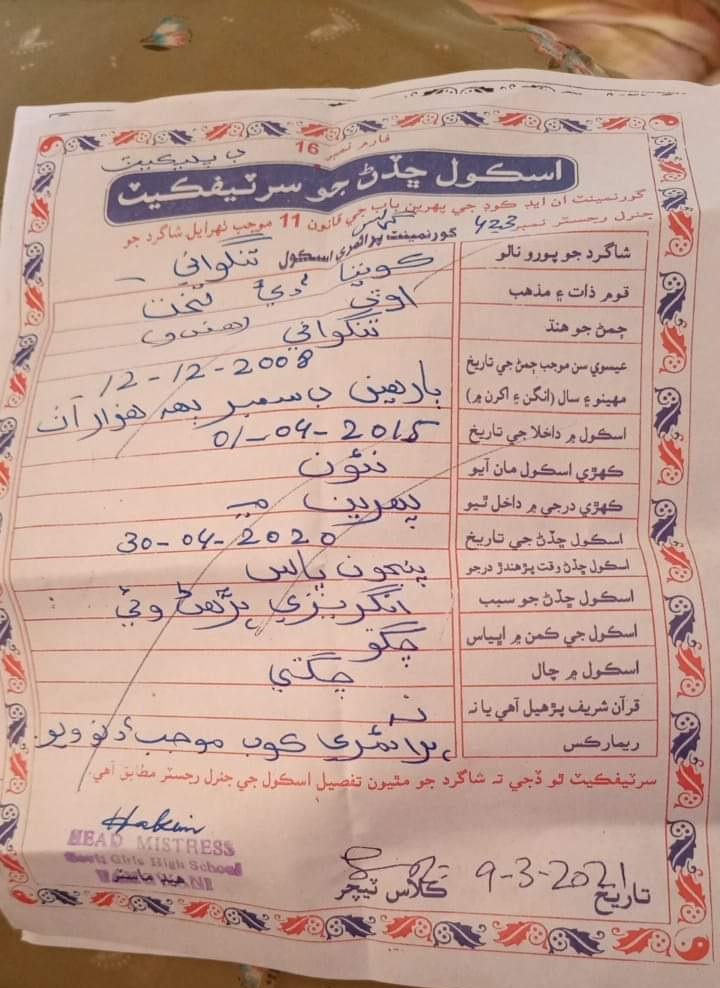 فارم نمبر 16
ڊپليڪيٽ
اسڪول ڇڏڻ جو سرٽيفڪيٽ
گورنمينٽ ان ايڊ ڪوڊ جي پهرين باب جي قانون 11 موجب ٺهرايل شاگرد جو
جنرل رجسٽر نمبر 423 گورنمينٽ پرائمري اسڪول تنگواڻي
شاگرد جو پورو نالو ڪويتا
قوم ذات ۽ مذهب
ڄمڻ جو هنڌ تنگواڻي
عيسوي سن موجب ڄمڻ جي تاريخ 12-12-2008
مهينو ۽ سال (انگن ۽ اکرن ۾) ٻارهين ڊسمبر ٻه هزار اٺ
اسڪول ۾ داخلا جي تاريخ 01-04-2015
ڪهڙي اسڪول مان آيو نئون
ڪهڙي درجي ۾ داخل ٿيو پهرين ۾
اسڪول ڇڏڻ جي تاريخ 30-04-2020
اسڪول ڇڏڻ وقت پڙهندڙ درجو پنجون پاس
اسڪول ڇڏڻ جو سبب انگريزي پڙهڻ وئي
اسڪول جي ڪمن ۾ اڀياس چڱو
اسڪول ۾ چال چڱي
قرآن شريف پڙهيل آهي يا نه نه
ريمارڪس پرائمري ڪوڊ موجب ڏنو ويو.
سرٽيفڪيٽ ٿو ڏجي ته شاگرد جو مٿيون تفصيل اسڪول جي جنرل رجسٽر مطابق آهي.
Hakim
HEAD MISTRESS
Govt: Girls High School
هيڊ ماستر
ڪلاس ٽيچر
تاريخ 9-3-2021